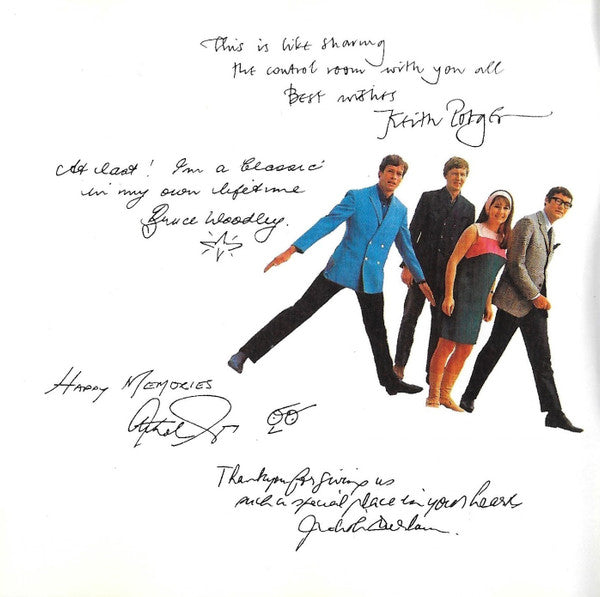 This is like sharing
the control room with you all
Best wishes
Keith Potger
At last! I'm a 'Classic'
in my own lifetime
Bruce Woodley.
HAPPY MEMORIES
Athol Guy
Thankyou for giving us
such a special place in your hearts
Judith Durham.